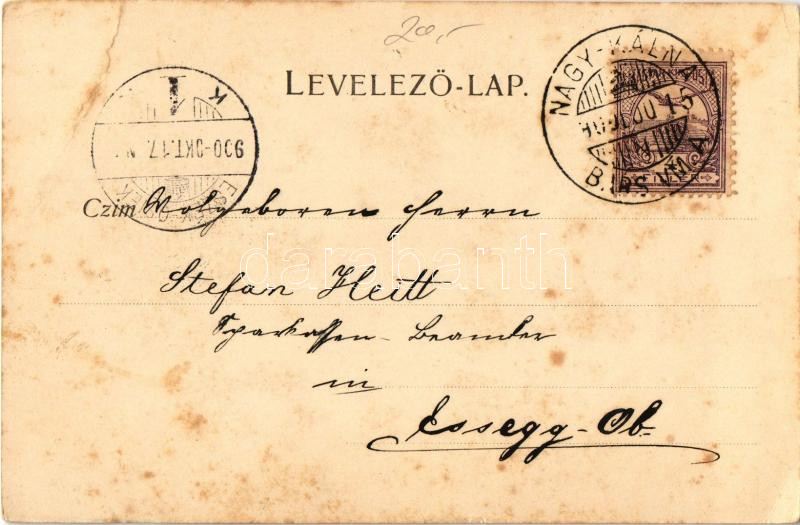 20,-
LEVELEZŐ-LAP.
NAGY-KÁLNA
BARS VM.
K 1 K
900-OKT.17. N
Czim Wolgeboren Herrn
Stefan Heitt
Sparkassen-Beamder
in
Essegg-Ob.
darabanth